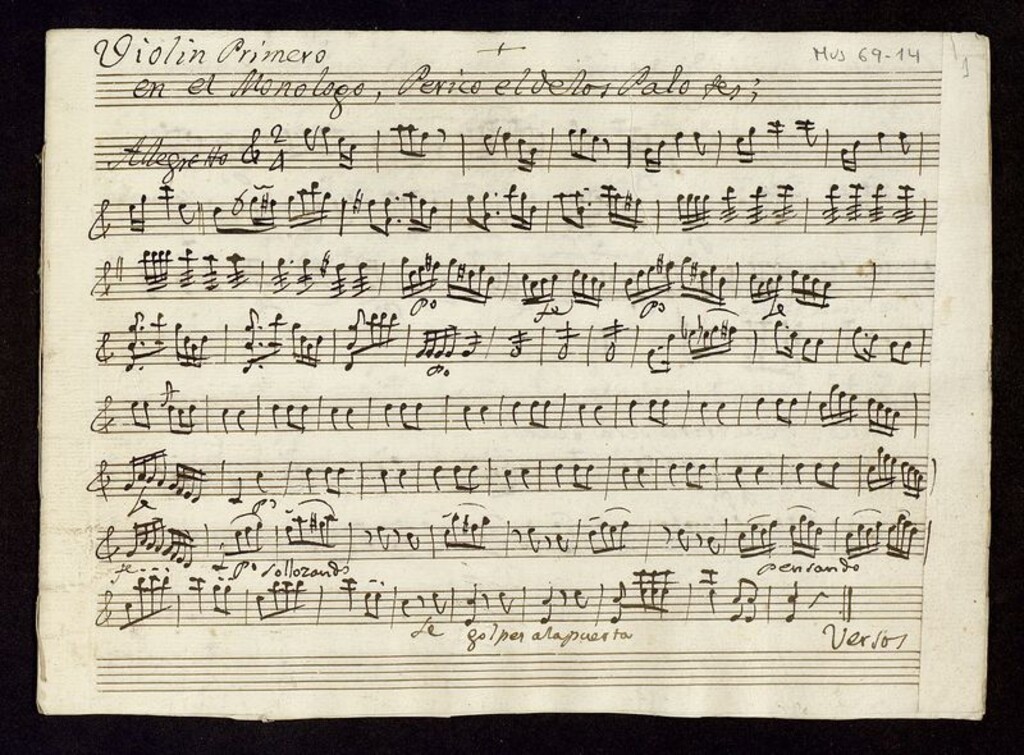 Violin Primero
Mus 69-14
1
en el Monologo, Perico el de los Palotes;
Allegretto 2/4
Po fe Po fe
Po
fe
fe Po sollozando pensando
fe golpes a la puerta Versos